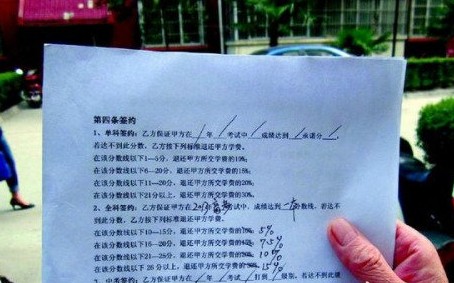 第四条签约
1、单科签约：乙方保证甲方在 / 年 / 考试中 / 成绩达到 / 承诺分 / ，
若达不到此分数，乙方按下列标准退还甲方学费。
在该分数线以下1—5分，退还甲方所交学费的10%；
在该分数线以下6—20分，退还甲方所交学费的15%；
在该分数线以下11—20分，退还甲方所交学费的20%；
在该分数线以下21分以上，退还甲方所交学费的50%。
2、全科签约：乙方保证甲方在 考试中，成绩达到 一本 分数线，若达不
到此分数，乙方按下列标准退还甲方学费。
在该分数线以下10—15分，退还甲方所交学费的 5%
在该分数线以下16—20分，退还甲方所交学费的 7.5%
在该分数线以下21—25分，退还甲方所交学费的 10%
在该分数线以下26分以上，退还甲方所交学费的 15%
年 考试 级别，若达不到此级